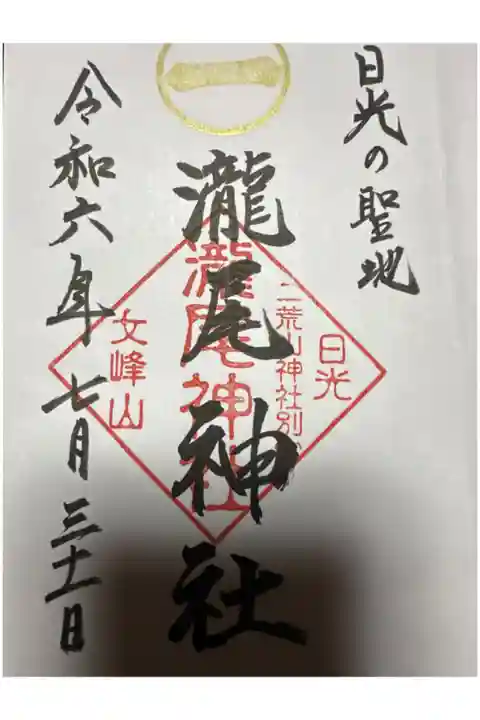 日光の聖地
瀧尾神社
令和六年七月三十一日
日光
二荒山神社別宮
瀧尾神社
女峰山